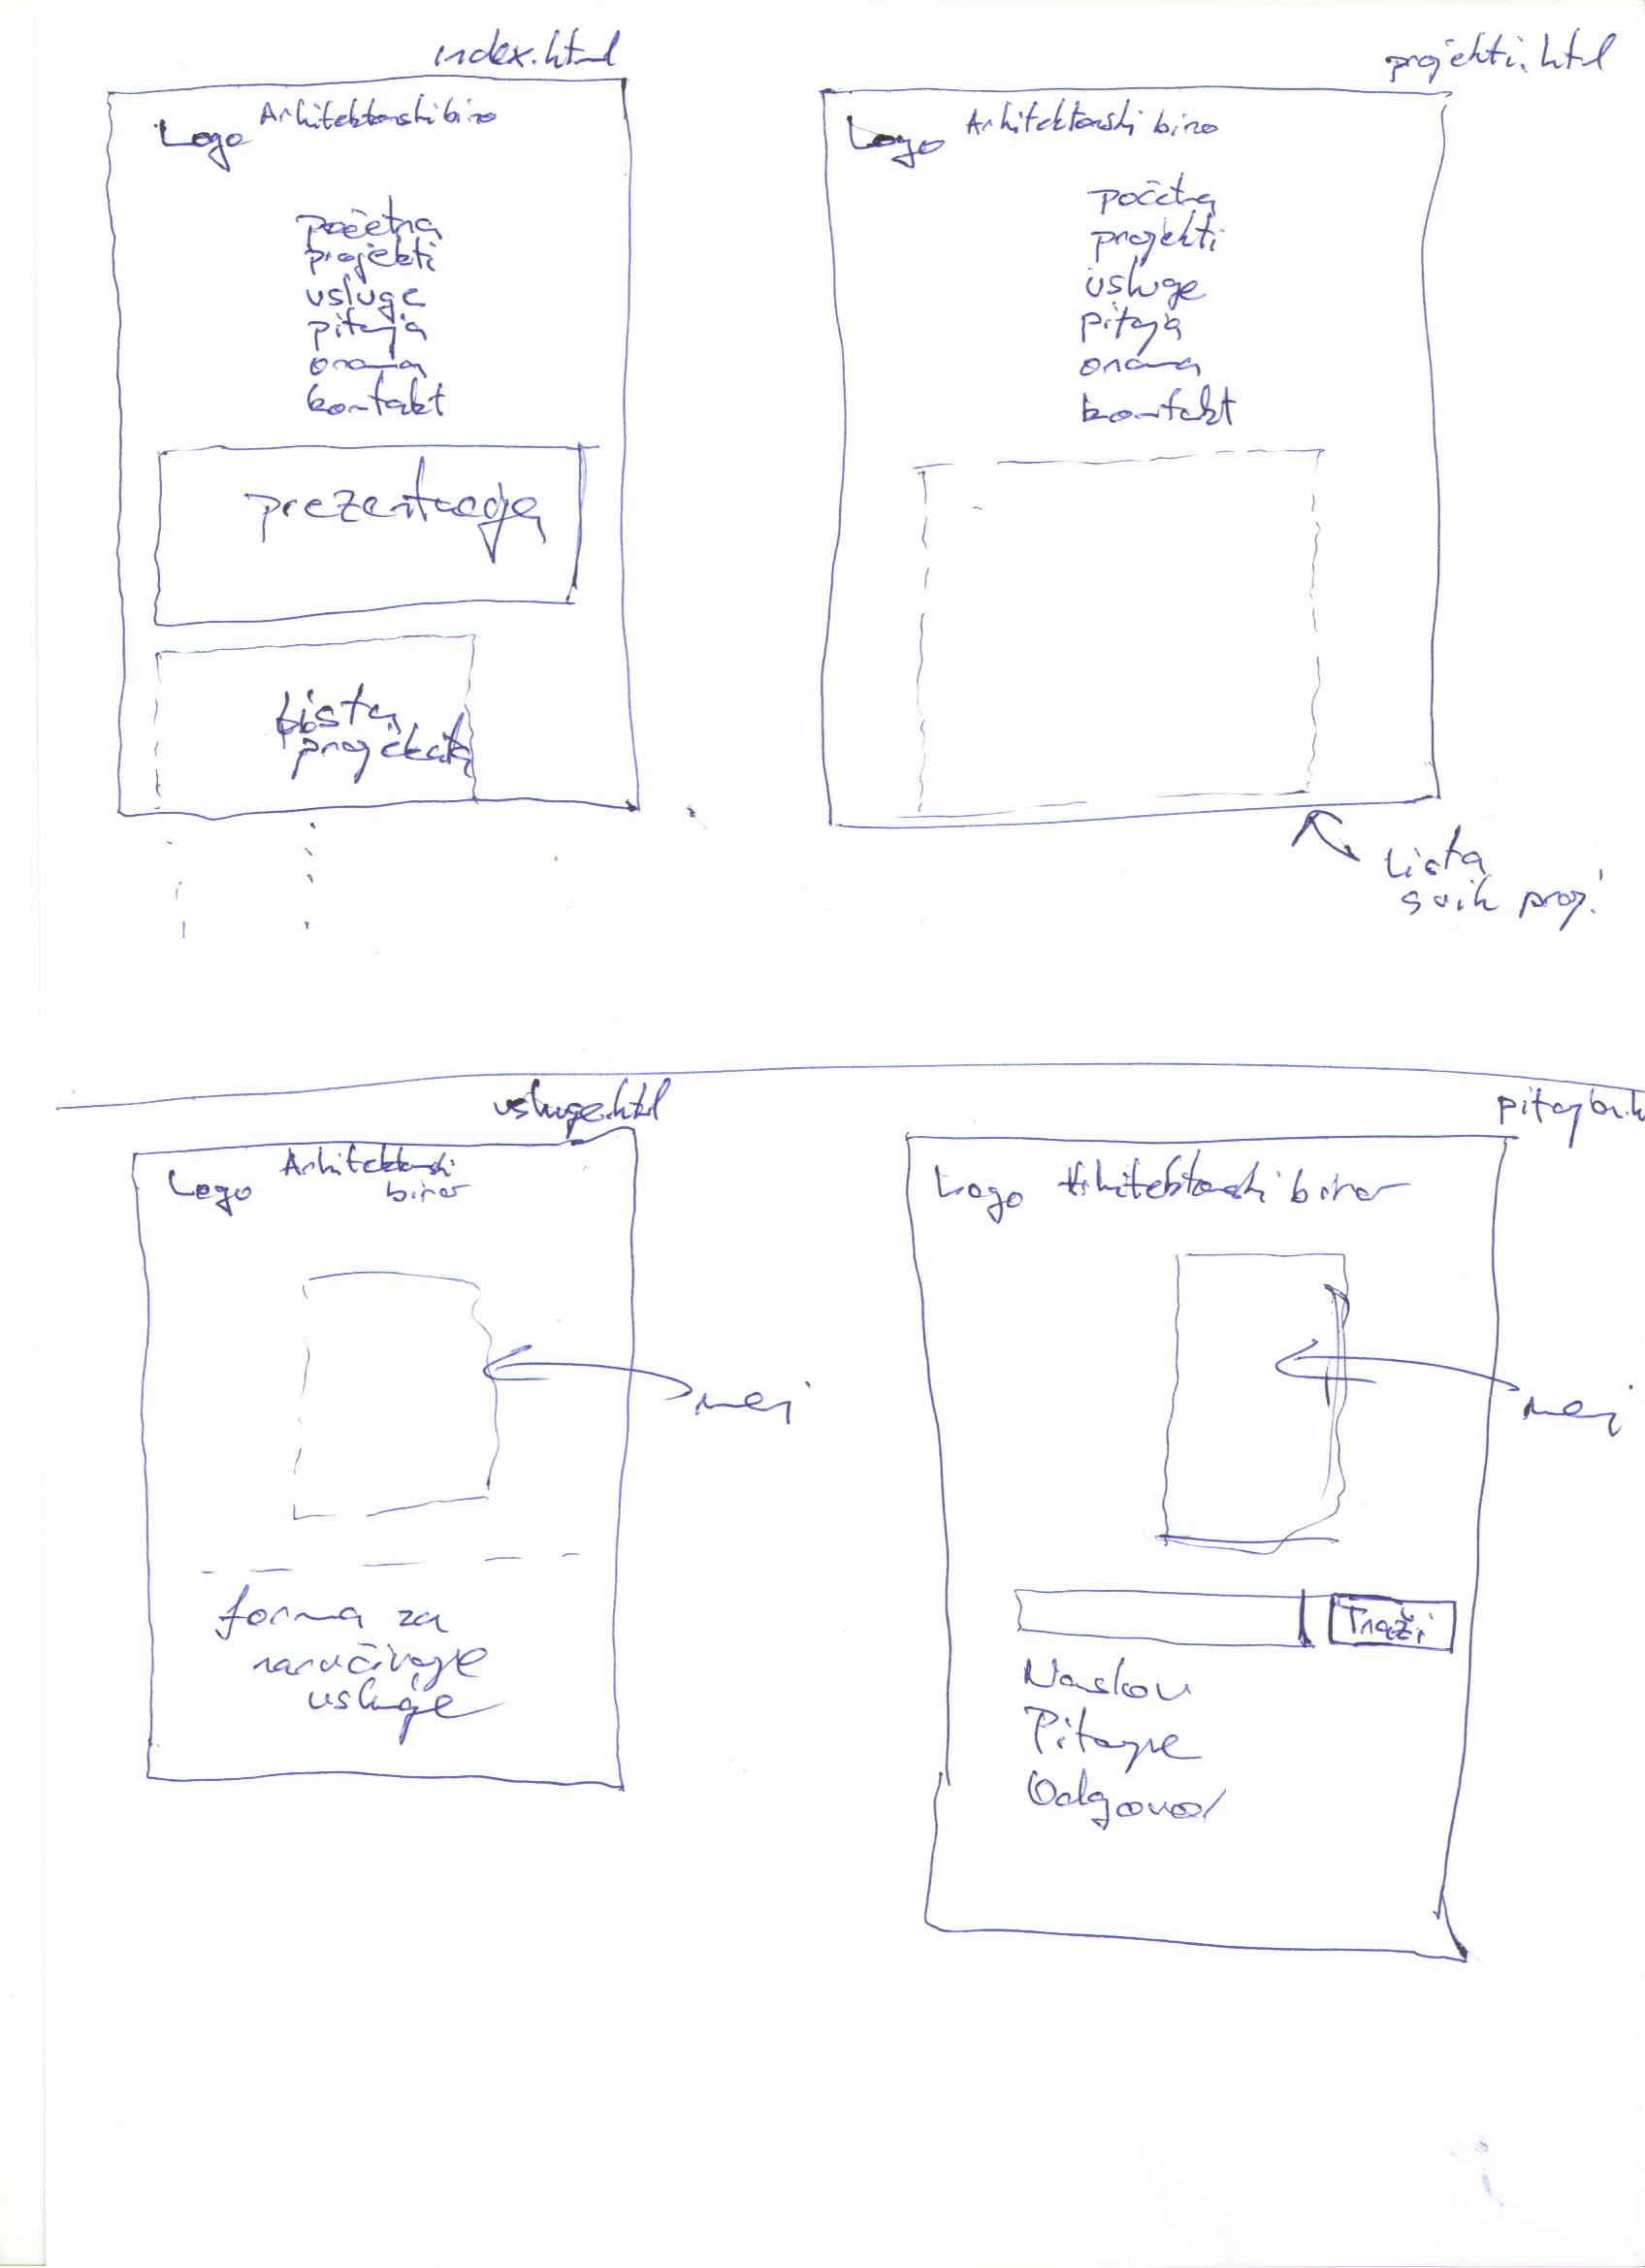 index.html
Logo Arhitektonski biro
početna
projekti
usluge
pitaja
onama
kontakt
prezentacija
lista
projekata
projekti.html
Logo Arhitektonski biro
početna
projekti
usluge
pitaja
onama
kontakt
Lista
svih proj.
usluge.html
Logo Arhitektonski
biro
meni
forma za
naručivanje
usluge
Logo Arhitektonski biro
meni
Traži
Naslov
Pitanje
Odgovor